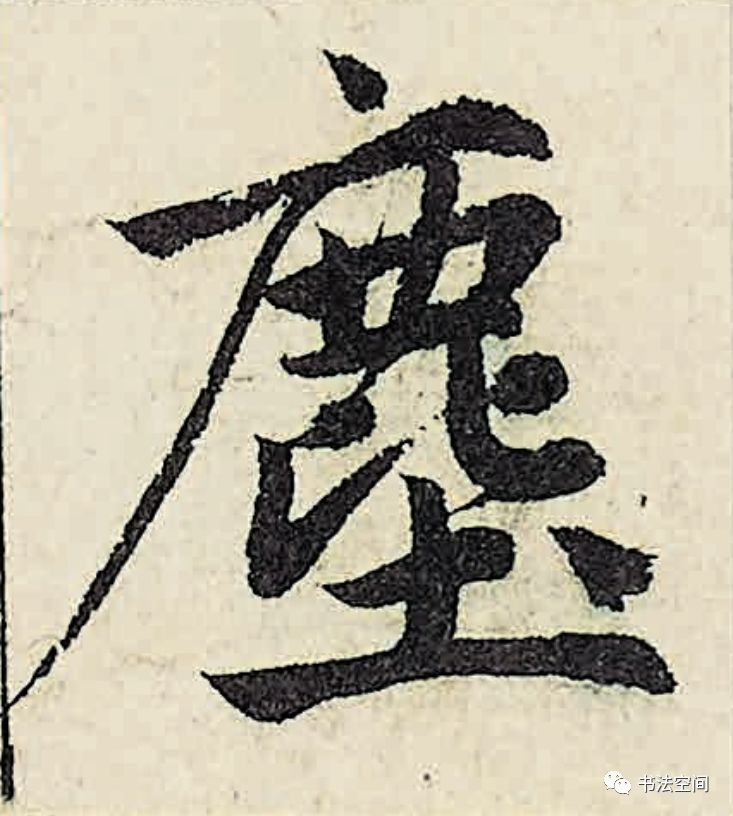 塵
书法空间